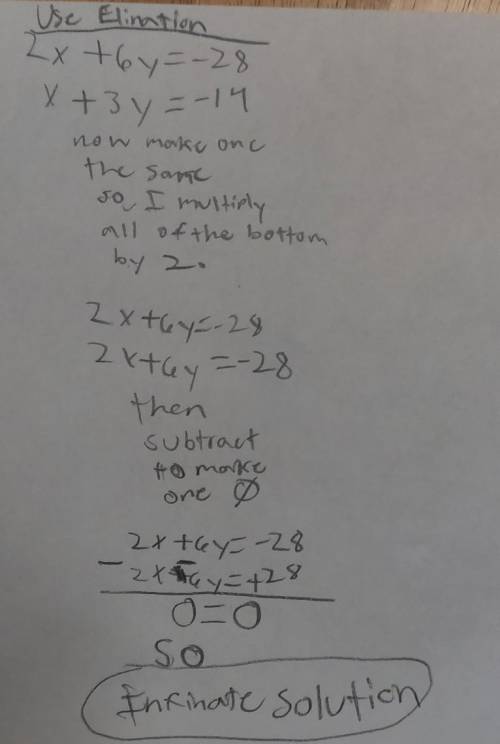 Use Elination
2x + 6y = -28
x + 3y = -14
now make one
the same
so, I multiply
all of the bottom
by 2.
2x + 6y = -28
2x + 6y = -28
then
subtract
to make
one 0
2x + 6y = -28
- 2x - 6y = +28
0 = 0
so
Infinate solution